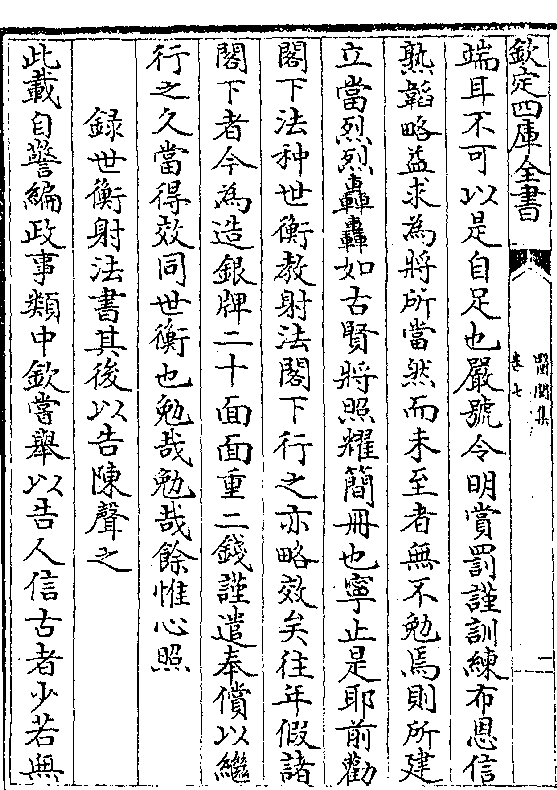 欽定四庫全書
卷七
二
端耳不可以是自足也嚴號令明賞罰謹訓練布恩信
熟韜略益求為將所當然而未至者無不勉焉則所建
立當烈烈轟轟如古賢將照耀簡冊也寧止是耶前勸
閣下法种世衡教射法閣下行之亦略效矣往年假諸
閣下者今為造銀牌二十面面重二錢謹遣奉償以繼
行之久當得效同世衡也勉哉勉哉餘惟心照
録世衡射法書其後以告陳聲之
此載自警編政事類中欽嘗舉以告人信古者少若無